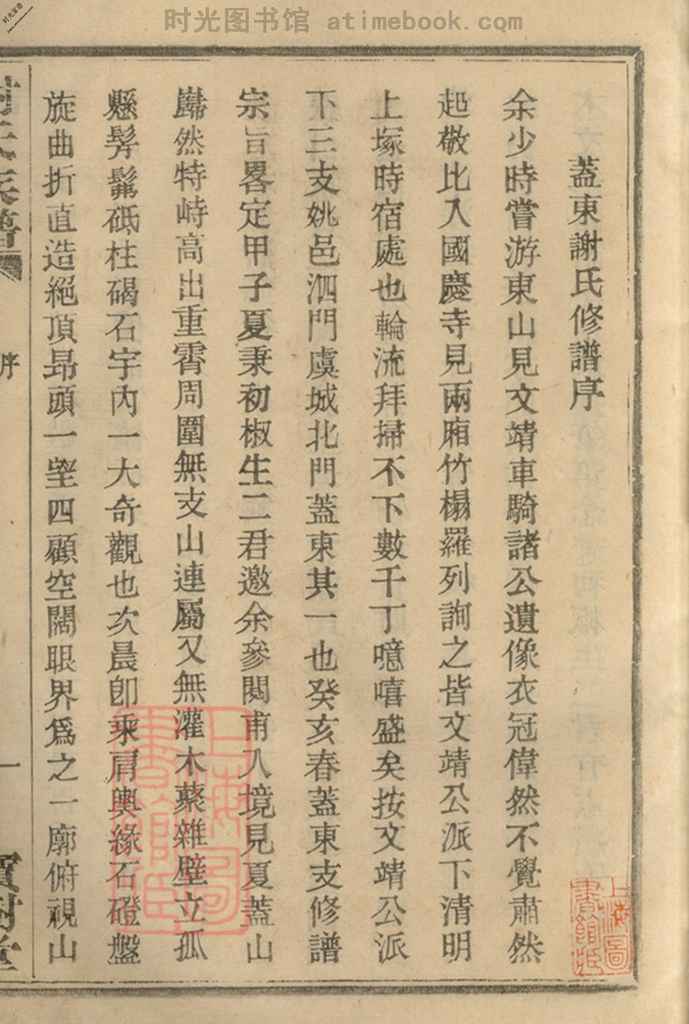 时光图书馆 atimebook.com
蓋東謝氏修譜序
余少時嘗游東山見文靖車騎諸公遺像衣冠偉然不覺肅然
起敬比入國慶寺見兩廂竹榻羅列詢之皆文靖公派下清明
上塚時宿處也輪流拜掃不下數千丁噫嘻盛矣按文靖公派
下三支姚邑泗門虞城北門蓋東其一也癸亥春蓋東支修譜
宗旨畧定甲子夏秉初椒生二君邀余參閱甫入境見夏蓋山
巋然特峙高出重霄周圍無支山連屬又無灌木蘩雜壁立孤
懸髣髴砥柱碣石宇內一大奇觀也次晨卽乘肩輿緣石磴盤
旋曲折直造絕頂昻頭一望四顧空闊眼界爲之一廓俯視山
謝氏族譜
序
一
寶樹堂
上海圖書館藏